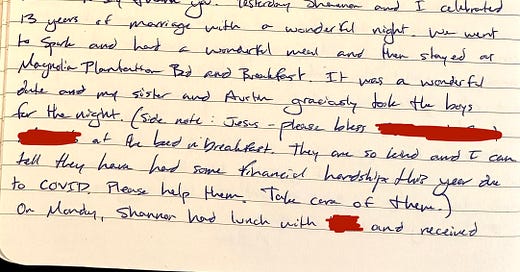 you. Yesterday Shannon and I celebrated
13 years of marriage with a wonderful night. We went
to Spark and had a wonderful meal and then stayed at
Magnolia Plantation Bed and Breakfast. It was a wonderful
date and my sister and Austin graciously took the boys
for the night. (side note: Jesus - please bless
at the bed n' breakfast. They are so kind and I can
tell they have had some financial hardships this year due
to COVID. Please help them. Take care of them.)
On Monday, Shannon had lunch with and received